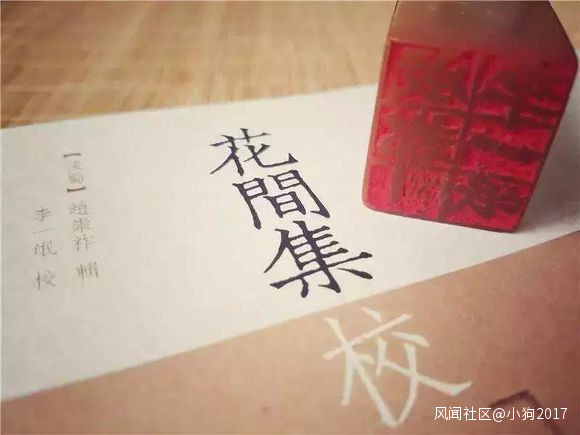 花間集
【後蜀】趙崇祚 輯
李一氓 校
校
风闻社区@小狗2017